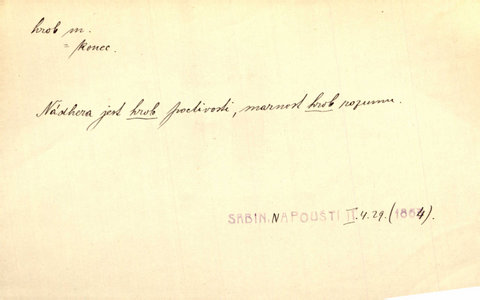 hrob m.
= konec.
Nádhera jest hrob poctivosti, marnost hrob rozumu.
SABIN. NA POUŠTI II. 4. 29. (1864).